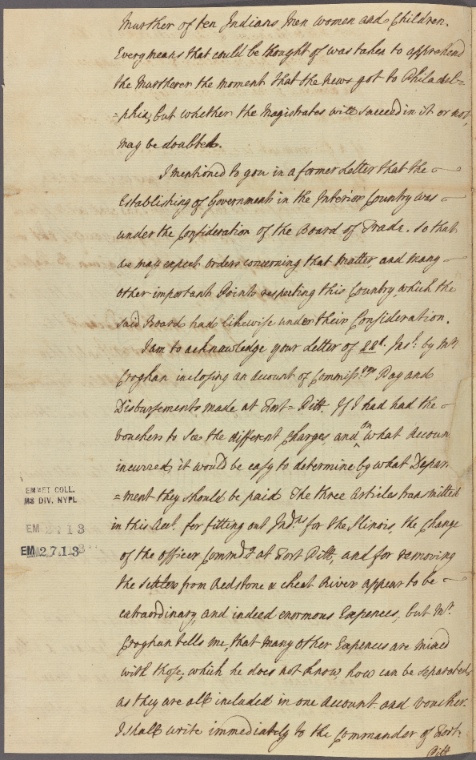 Murther of ten Indians Men women and Children.
Every means that could be thought of was taken to apprehend
the Murtherer the moment that the news got to Philadel-
=phia, but whether the Magistrates will succeed in it or not,
may be doubted.
I mentioned to you in a former Letter that the
Establishing of Government in the Interior Country was
under the Consideration of the Board of Trade. so that
we may expect orders concerning that Matter, and many
other important Points respecting this Country, which the
said Board had likewise under their Consideration.
I am to acknowledge your Letter of 22d. Jany. by Mr.
Croghan inclosing an account of Commissys Pay and
Disbursements made at Fort=Pitt. If I had had the
vouchers to see the different Charges and on what Account
incurred, it would be easy to determine by what Depart
=ment they should be paid. The three Articles transmitted
in this Acct. for fitting out Inds. for the Ilinois, the Charge
of the officer Commdg at Fort Pitt, and for removing
the Settlers from Redstone & Cheat River appear to be
extraordinary, and indeed enormous Expences, but Mr.
Croghan tells me, that many other Expences are mixed
with those, which he does not know how can be separated,
as they are all included in one Account and voucher.
I shall write immediately to the Commander of Fort-
Pitt
EMMET COLL.
MS DIV. NYPL
EM 2713
EM 2713